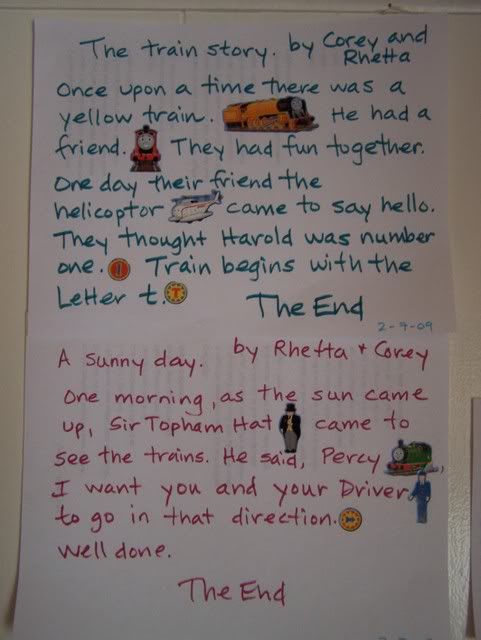 The train story. by Corey and
Rhetta
Once upon a time there was a
yellow train. He had a
friend. They had fun together.
One day their friend the
helicoptor came to say hello.
They thought Harold was number
one. 1 Train begins with the
Letter t. T The End
2-7-09
A sunny day. by Rhetta + Corey
One morning, as the sun came
up, Sir Topham Hat came to
see the trains. He said, Percy,
I want you and your Driver
to go in that direction.
Well done.
The End